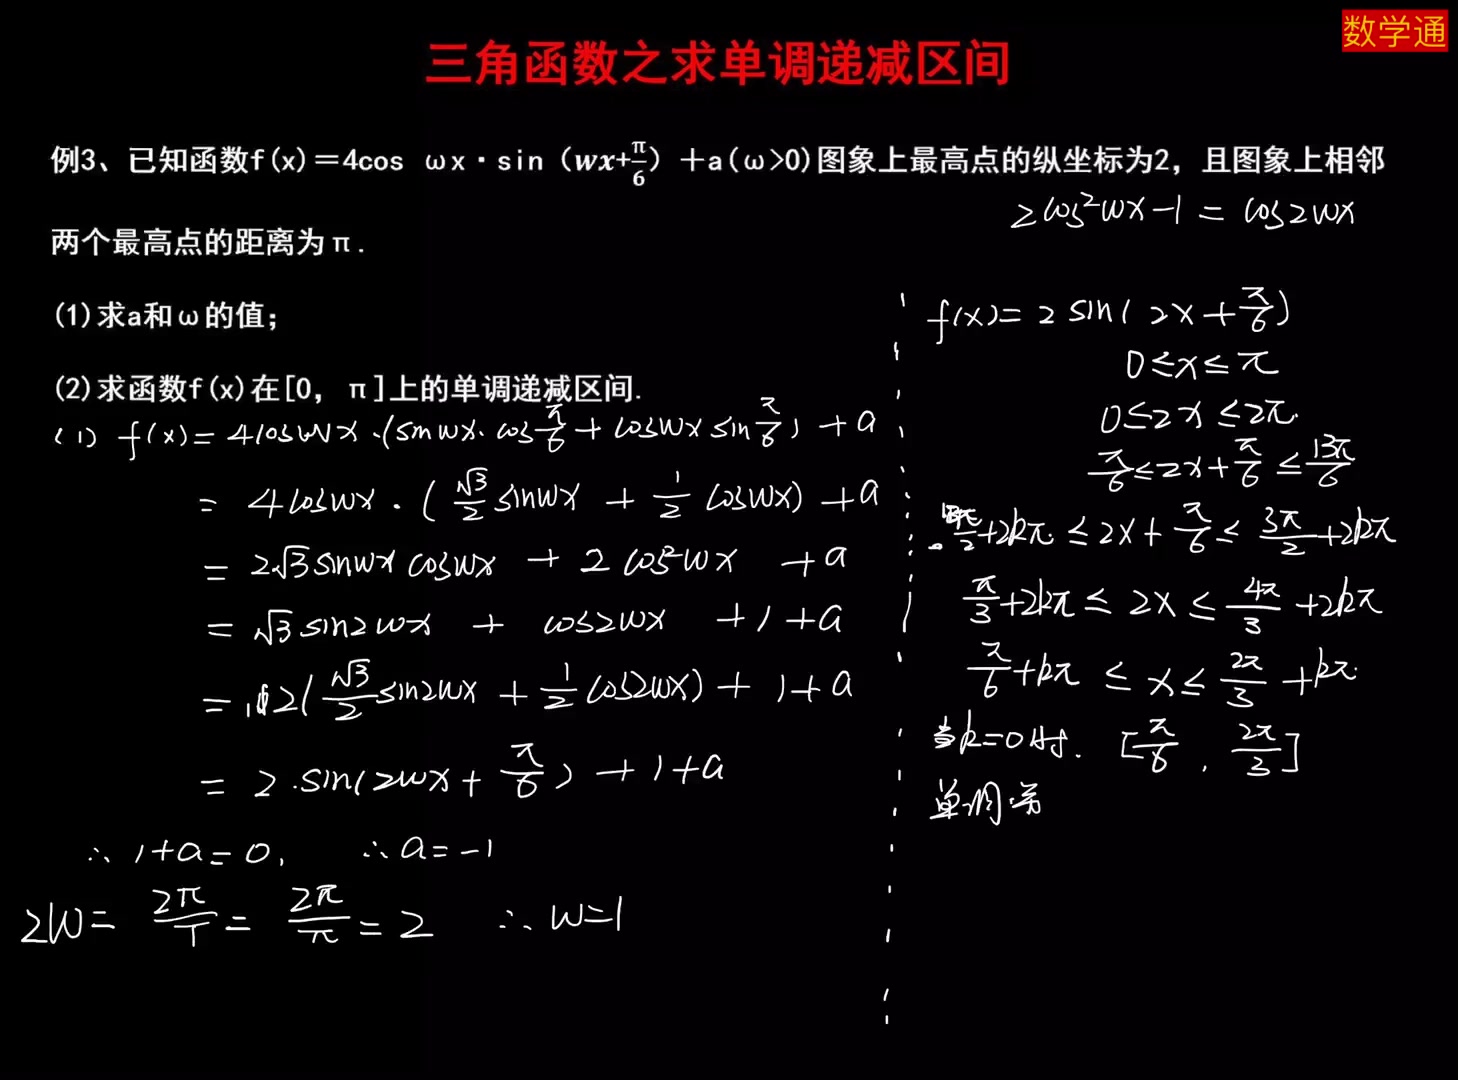 数学通
三角函数之求单调递减区间
例3、已知函数f(x)=4cos ωx·sin(wx+π/6)+a(ω>0)图象上最高点的纵坐标为2，且图象上相邻
两个最高点的距离为π.
(1)求a和ω的值；
(2)求函数f(x)在[0，π]上的单调递减区间.
(1) f(x)=4cosωx·(sinωx·cosπ/6+cosωx sinπ/6)+a
=4cosωx·(√3/2 sinωx+1/2 cosωx)+a
=2√3sinωx cosωx+2cos²ωx+a
=√3sin2ωx+cos2ωx+1+a
=2(√3/2 sin2ωx+1/2 cos2ωx)+1+a
=2·sin(2ωx+π/6)+1+a
∴1+a=0, ∴a=-1
2W=2π/T=2π/π=2 ∴W=1
2cos²ωx-1=cos2ωx
f(x)=2sin(2x+π/6)
0≤x≤π
0≤2x≤2π.
π/6≤2x+π/6≤13π/6
π/2+2kπ≤2x+π/6≤3π/2+2kπ
π/3+2kπ≤2x≤4π/3+2kπ
π/6+kπ≤x≤2π/3+kπ.
当k=0时. [π/6, 2π/3]
单调